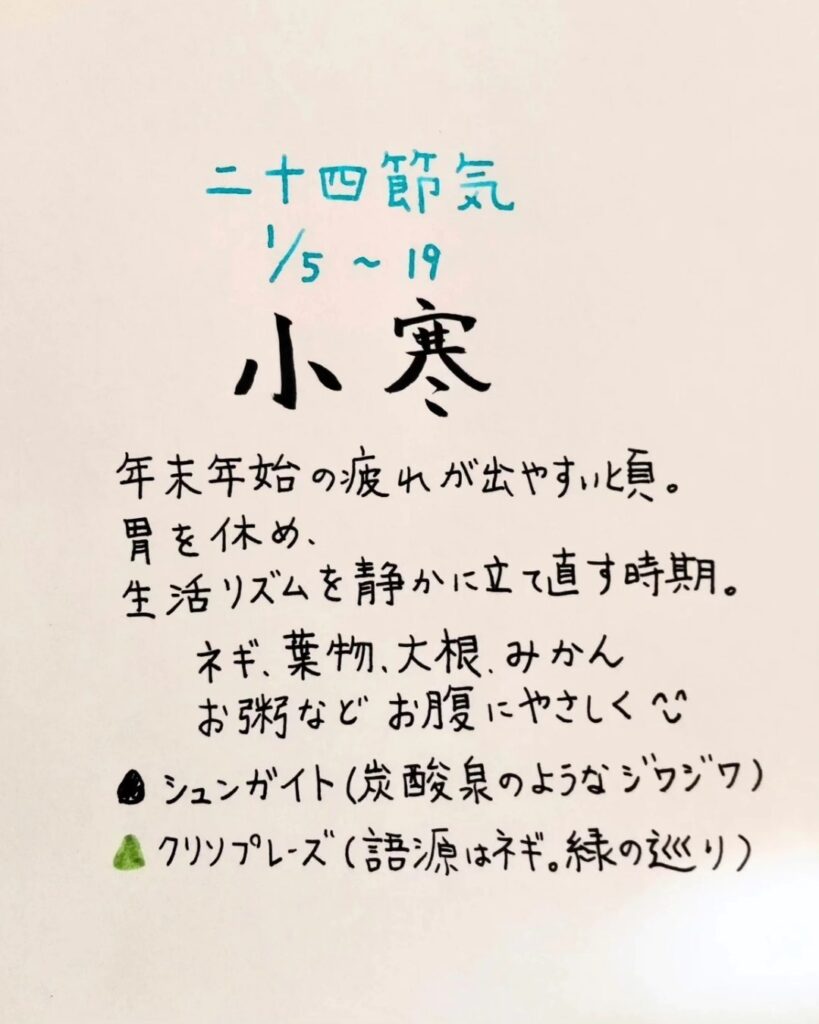 二十四節気
1/5 〜 19
小寒
年末年始の疲れが出やすい頃。
胃を休め、
生活リズムを静かに立て直す時期。
ネギ、葉物、大根、みかん
お粥など お腹にやさしく
シュンガイト(炭酸泉のようなジワジワ)
クリソプレーズ(語源はネギ。緑の巡り)